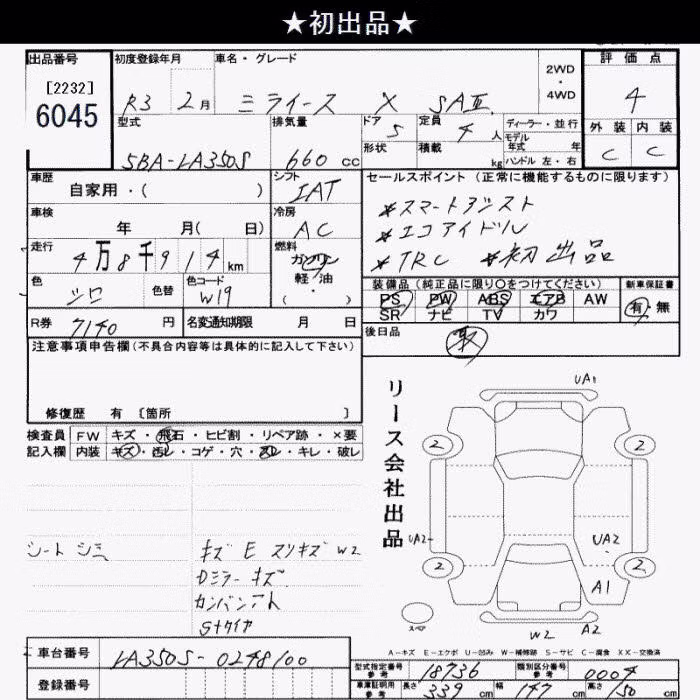 ★初出品★
出品番号 初度登録年月 車名・グレード 2WD・4WD 評価点
[2232]
6045
R3 2月 ミライース X SAⅢ 4
型式 排気量 ドア 5 定員 4人 ディーラー・並行 外装 内装
形状 積載 kg モデル年式 年
ハンドル 左・右
5BA-LA350S 660cc C C
車歴 シフト セールスポイント(正常に機能するものに限ります)
自家用・( ) IAT
*スマートアシスト
車検 冷房
年 月( 日) AC
*エコアイドル
走行 燃料
4万8千914km ガソリン
軽・油
・( )
*TRC *初出品
色 色替 色コード 装備品(純正品に限り○をつけてください) 新車保証書
シロ W19 PS PW ABS エアB AW 有・無
SR ナビ TV カワ
R券 7140円 名変通知期限 月 日 後日品
取
注意事項申告欄(不具合内容等は具体的に記入して下さい)
修復歴 有 [箇所 ]
検査員 FW キズ・飛石・ヒビ割・リペア跡・×要
記入欄 内装 キズ・汚レ・コゲ・穴・スレ・キレ・破レ
リース会社出品
UA1
2 2
シート シミ
キズ E スリキズ W2
Dミラー キズ
カンバンアト
Sタイヤ
UA2 UA2
2 2
A1
スペア
W2 A2
A-キズ E-エクボ U-凹み W-補修跡 S-サビ C-腐食 XX-交換済
車台番号 LA350S-0248100
型式指定番号参考 18736 類別区分番号参考 0004
登録番号
車庫証明用参考 長さ 339cm 幅 147cm 高さ 150cm